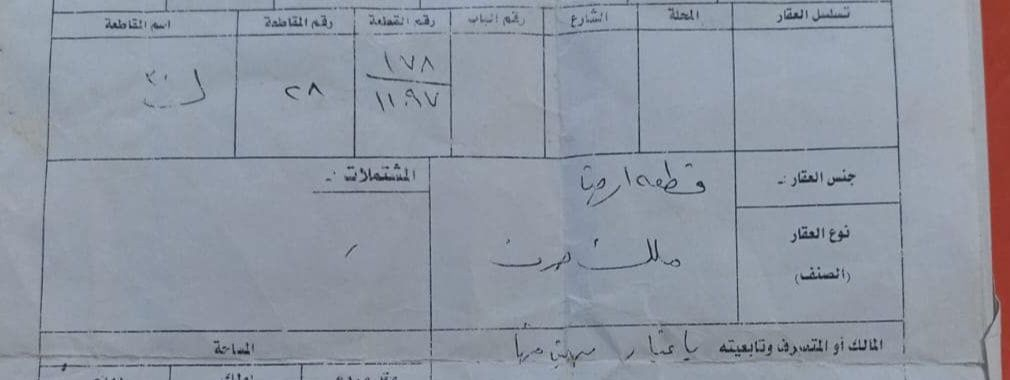 تسلسل العقار المحلة الشارع رقم الباب رقم القطعة رقم المقاطعة اسم المقاطعة
١٧٨
١١٠٩٧ ٢٨
جنس العقار :- قطعه المشتملات :-
نوع العقار ملك صرف
(الصنف)
المالك أو المتصرف وتابعيته باعتبار المساحة